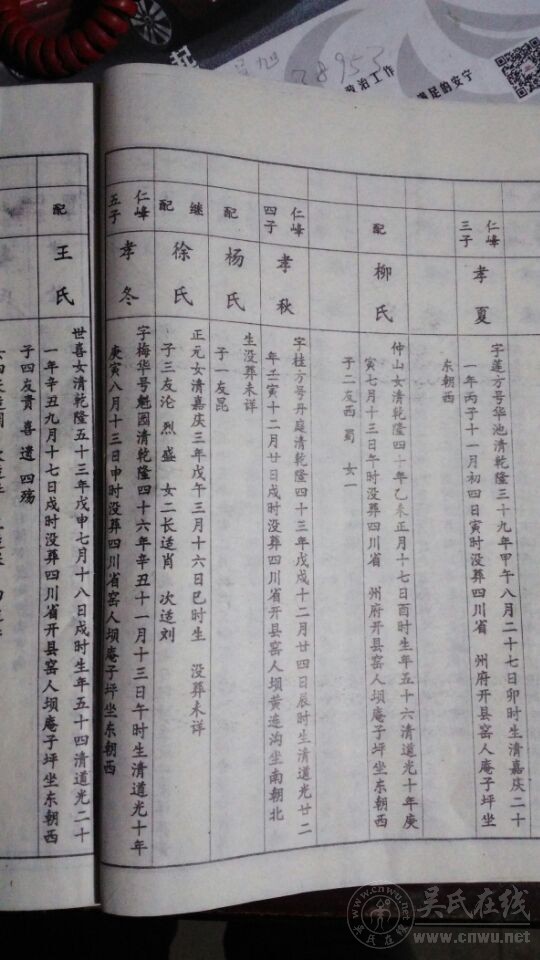 起
38953
政治工作
满足的安宁
仁峰
三子
孝夏
字莲方号华池清乾隆三十九年甲午八月二十七日卯时生清嘉庆二十
一年丙子十一月初四日寅时没葬四川省 州府开县窑人庵子坪坐
东朝西
配
柳氏
仲山女清乾隆四十年乙未正月十七日酉时生年五十六清道光十年庚
寅七月十三日午时没葬四川省 州府开县窑人坝庵子坪坐东朝西
子二友西 蜀 女一
仁峰
四子
孝秋
字桂方号丹庭清乾四十三年戊戌十二月廿四日辰时生清道光廿二
年壬寅十二月廿日戌时没葬四川省开县窑人坝黄连沟坐南朝北
配
杨氏
生没葬未详
子一友昆
继配
徐氏
正元女清嘉庆三年戊午三月十六日巳时生 没葬未详
子三友沦 烈 盛 女二长适肖 次适刘
仁峰
五子
孝冬
字梅华号魁国清乾隆四十六年辛丑十一月十三日午时生清道光十年
庚寅八月十三日申时没葬四川省窑人坝庵子坪坐东朝西
配
王氏
世喜女清乾隆五十三年戊申七月十八日戌时生年五十四清道光二十
一年辛丑九月十七日戌时没葬四川省开县窑人坝庵子坪坐东朝西
子四友贵 喜 遗 四殇
吴氏在线
www.cnwu.net